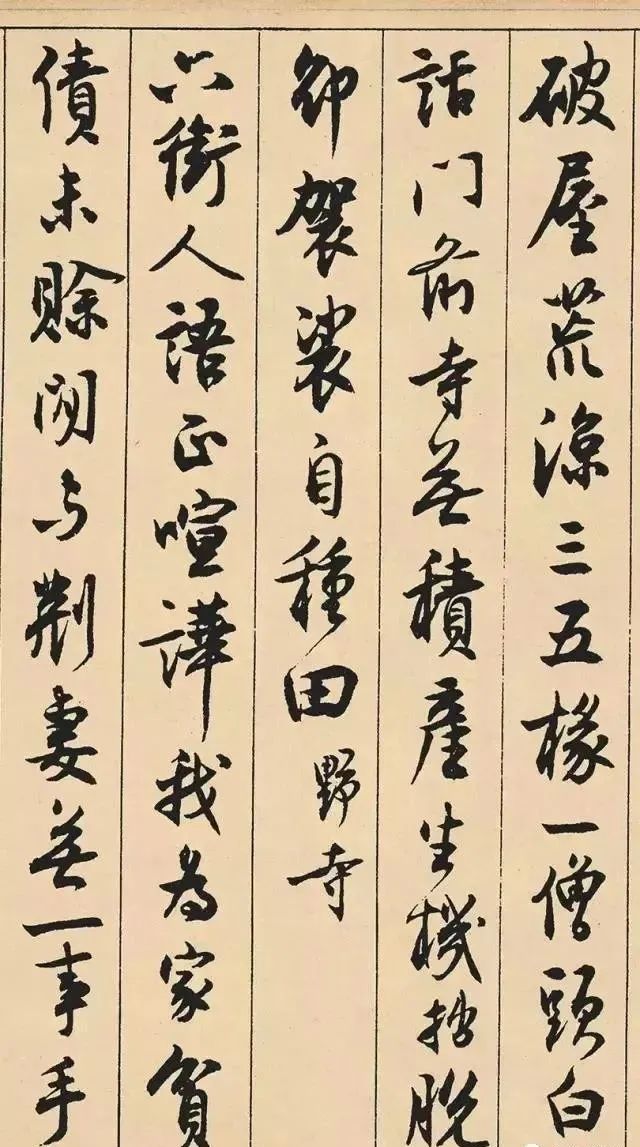 破屋荒涼三五椽一僧頭白
話門前寺無積產生機拙脫
卻袈裟自種田野寺
六街人語正喧譁我為家貧
債未賒閒與荆妻無一事手